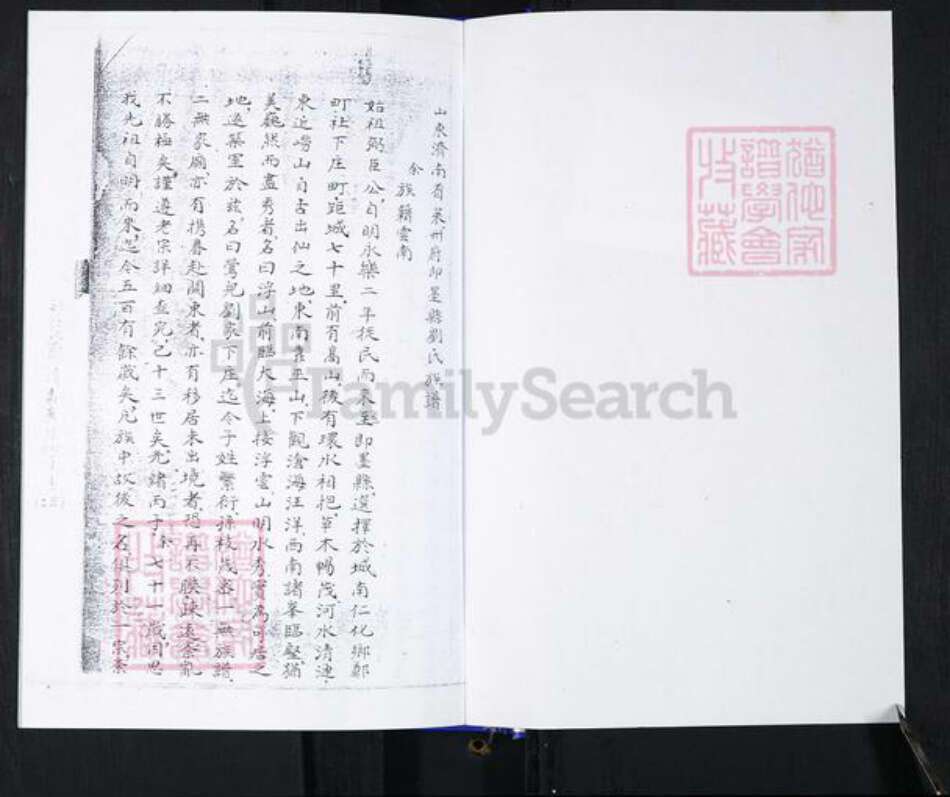 山東濟南省萊州府即墨縣劉氏族譜
余族籍雲南
始祖弼臣公自明永樂二年從民而來至即墨縣選擇於城南仁化鄉鄭
町社下庄町距城七十里前有高山後有環水相抱草木暢茂河水清連
東近嶗山自古出仙之地東南靠平山下觀滄海汪洋西南諸峯臨壑猶
美巍然而盡秀者名曰浮山前臨大海上接浮雲山明水秀實為可居之
地遂築室於玆名曰鶯兒劉家下庄迄今子姓繁衍孫枝茂盛一無族譜
二無家廟亦有携眷赴關東者亦有移居未出境者恐再不聯疎遠紊亂
不勝極矣謹遵老宗詳細查究已十三世矣光緒丙子余七十一歲因思
我先祖自明而來迄今五百有餘歲矣凡族中故後之名俱列於一宗
猶他家譜學會收藏
FamilySearch